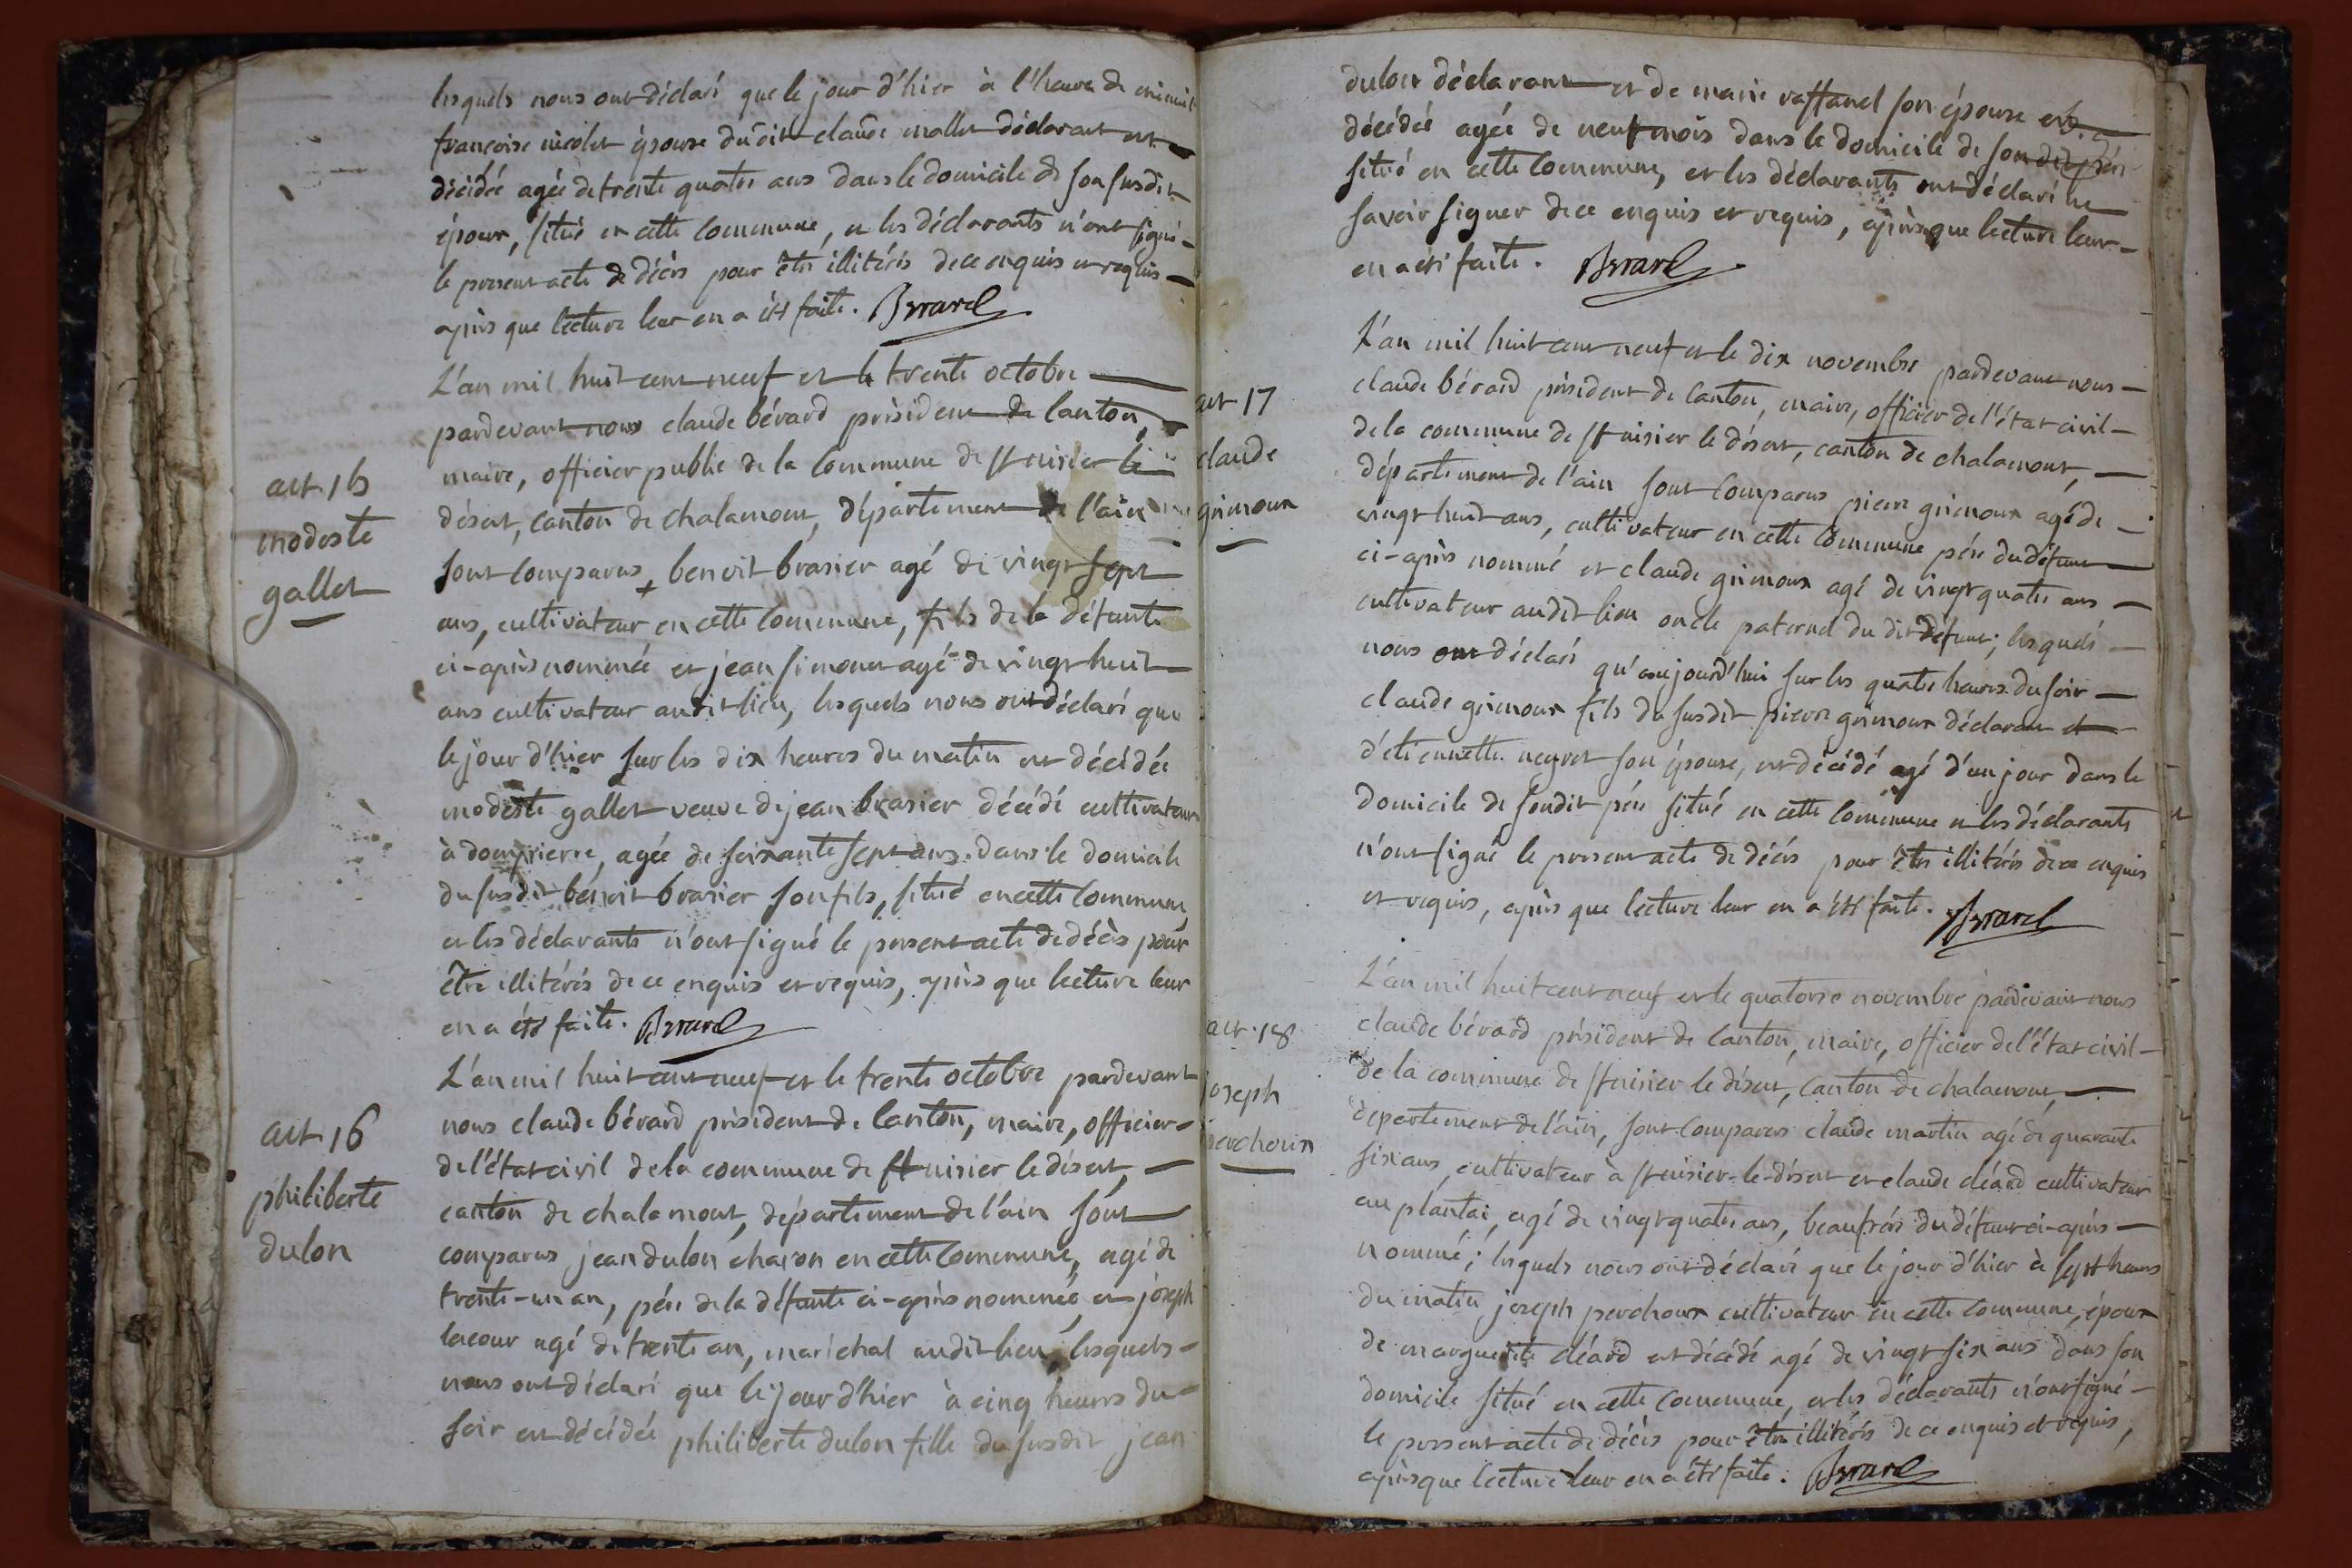 lesquels nous ont déclaré que le jour d'hier à l'heure de minuit
françoise nicolet épouse dudit claude mallet déclarant est
décédée agée de trente quatre ans dans le domicile de son susdit
époux, situé en cette Commune, et les déclarants n'ont signé
le present acte de décès pour être illitérés de ce enquis et requis
après que lecture leur en a été faite. Berard
L'an mil huit cent neuf et le trente octobre
pardevant nous claude bérard président de Canton,
maire, officier public de la Commune de st nisier le
désert, Canton de chalamont, département de l'ain
sont Comparus, benoit brasier agé de vingt sept
ans, cultivateur en cette Commune, fils de la défunte
ci-après nommée et jean simonet agé de vingt huit
ans cultivateur audit lieu, lesquels nous ont déclaré que
le jour d'hier sur les dix heures du matin est décédée
modeste gallet veuve de jean brasier décédé cultivateur
à dompierre, agée de soixante sept ans dans le domicile
du susdit benoit brasier son fils, situé en cette Commune
et les déclarants n'ont signé le present acte de décès pour
être illitérés de ce enquis et requis, après que lecture leur
en a été faite. Berard
L'an mil huit cent neuf et le trente octobre pardevant
nous claude bérard président de Canton, maire, officier
de l'état civil de la commune de st nisier le désert,
canton de chalamont, département de l'ain sont
comparus jean dulon charon en cette Commune, agé de
trente-un an, père de la défunte ci-après nommée et joseph
lacour agé de trente an, maréchal audit lieu, lesquels
nous ont déclaré que le jour d'hier à cinq heures du
soir est décédée philiberte dulon fille du susdit jean
art 15
modeste
gallet
art 16
philiberte
dulon
dulon déclarant et de marie raffanel son épouse est
décédée agée de neuf mois dans le domicile de son dit père
situé en cette Commune, et les déclarants ont déclaré ne
savoir signer de ce enquis et requis, après que lecture leur
en a été faite. Berard
L'an mil huit cent neuf et le dix novembre pardevant nous
claude bérard président de Canton, maire, officier de l'état civil
de la commune de st nisier le désert, canton de chalamont,
département de l'ain sont Comparus pierre grimoux agé de
vingt huit ans, cultivateur en cette Commune père du défunt
ci-après nommé et claude grimoux agé de vingt quatre ans
cultivateur audit lieu oncle paternel du dit défunt; lesquels
nous ont déclaré qu'aujourd'hui sur les quatre heures du soir
claude grimoux fils du susdit pierre grimoux déclarant et
d'etiennette neyret son épouse, est décédé agé d'un jour dans le
domicile de sondit père situé en cette Commune et les déclarants
n'ont signé le present acte de décès pour être illitérés de ce enquis
et requis, après que lecture leur en a été faite. Berard
L'an mil huit cent neuf et le quatorse novembre pardevant nous
claude bérard président de Canton, maire, officier de l'état civil
de la commune de st nisier le désert, Canton de chalamont,
departement de l'ain, sont Comparus claude martin agé de quarante
six ans, cultivateur à st nisier-le-désert et claude cléard cultivateur
au plantai, agé de vingt quatre ans, beaufrère du défunt ci-après
nommé; lesquels nous ont déclaré que le jour d'hier à sept heures
du matin joseph perchoux cultivateur en cette Commune, époux
de marguerite cléard est décédé agé de vingt six ans dans son
domicile situé en cette Commune, et les déclarants n'ont signé
le present acte de décès pour être illitérés de ce enquis et requis,
après que lecture leur en a été faite. Berard
art 17
claude
grimoux
art. 18
joseph
perchoux